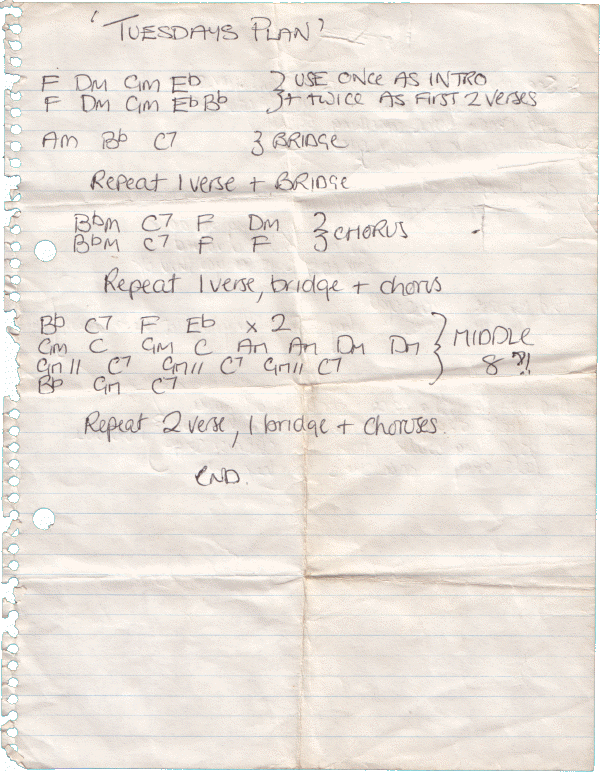 'TUESDAYS PLAN'
F Dm Gm Eb } USE ONCE AS INTRO
F Dm Gm Eb Bb } + twice AS FIRST 2 VERSES
Am Bb C7 } BRIDGE
Repeat 1 verse + BRIDGE
Bbm C7 F Dm } CHORUS
Bbm C7 F F
Repeat 1 verse, bridge + chorus
Bb C7 F Eb x 2
Gm C Gm C Am Am Dm Dm } MIDDLE
Gm// C7 Gm// C7 Gm// C7 8 ?!
Bb Gm C7
Repeat 2 verse, 1 bridge + choruses.
END.